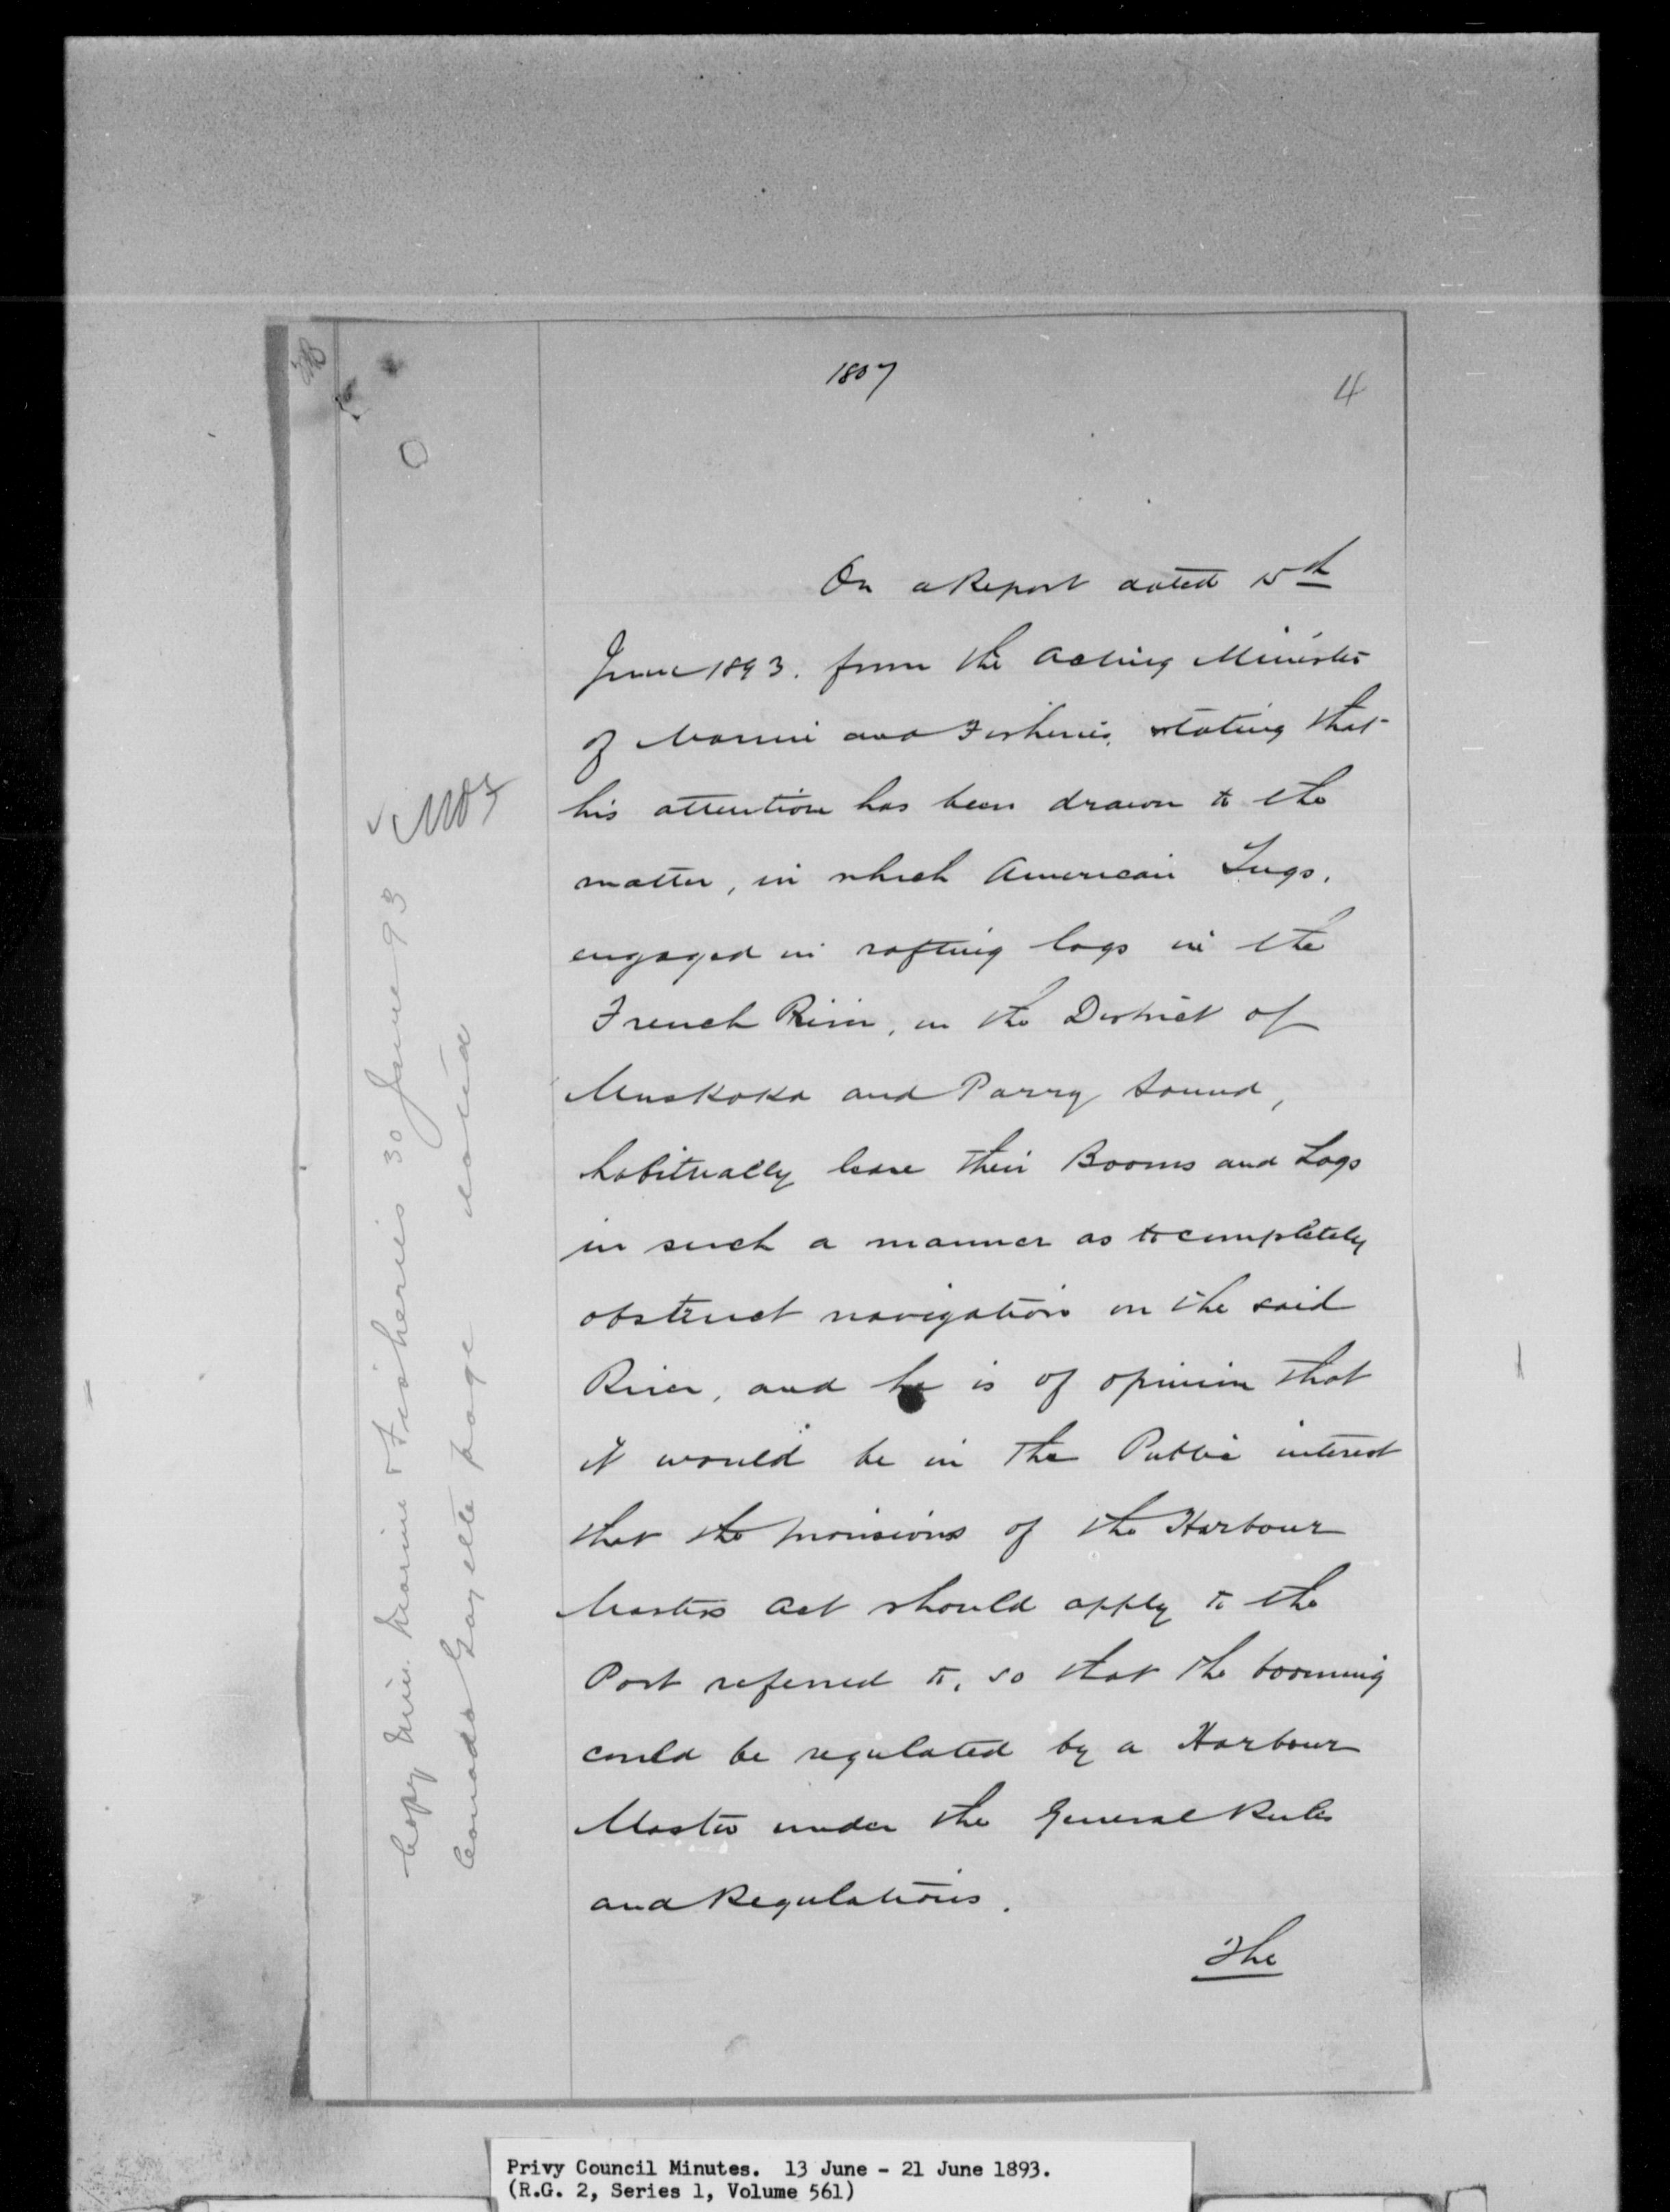 1807
4
On a Report dated 15th
June 1893. from the Acting Minister
of Marine and Fisheries, stating that
his attention has been drawn to the
matter, in which American Tugs,
engaged in rafting logs in the
French River, in the District of
Muskoka and Parry Sound,
habitually leave their Booms and Logs
in such a manner as to completely
obstruct navigation on the said
River, and he is of opinion that
it would be in the Public interest
that the provisions of the Harbour
Masters Act should apply to the
Port referred to, so that the booming
could be regulated by a Harbour
Master under the General Rules
and Regulations.
The
Copy Min. Marine & Fisheries 30 June 93
Canada Gazette page
Privy Council Minutes. 13 June - 21 June 1893.
(R.G. 2, Series 1, Volume 561)